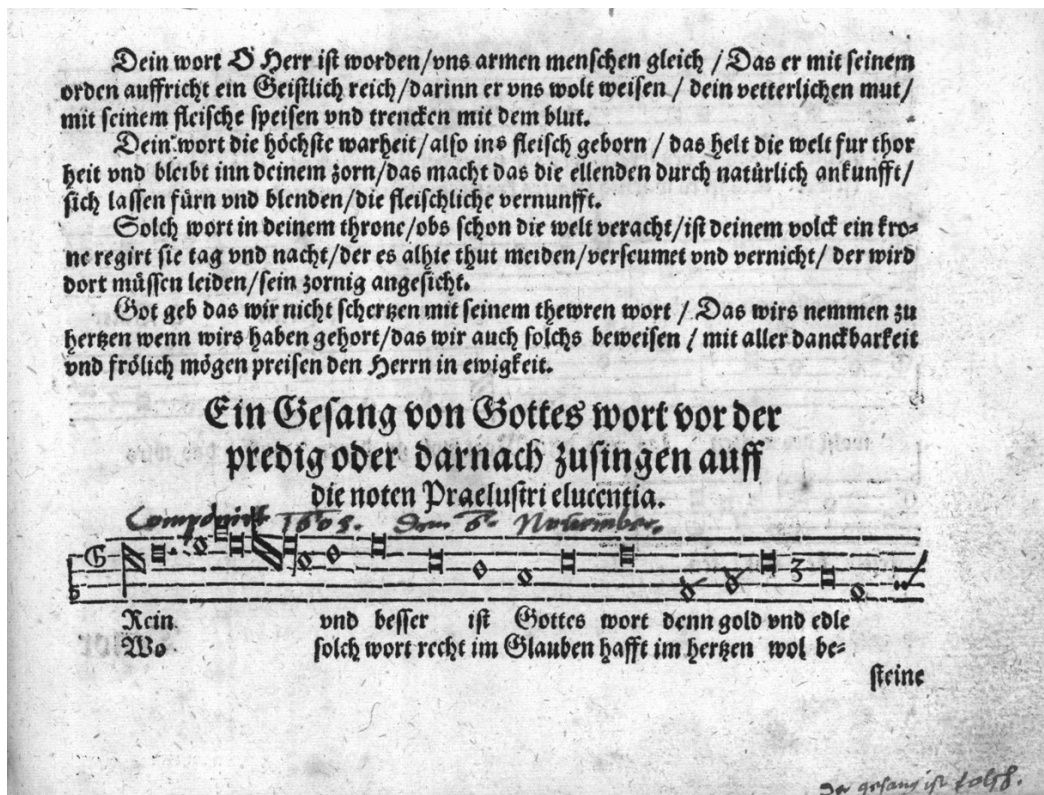 Dein wort O Herr ist worden/vns armen menschen gleich / Das er mit seinem
orden auffricht ein Geistlich reich/darinn er vns wolt weisen / dein vetterlichen mut/
mit seinem fleische speisen vnd trencken mit dem blut.
Dein wort die höchste warheit/also ins fleisch geborn / das helt die welt fur thor
heit vnd bleibt inn deinem zorn/das macht das die ellenden durch natürlich ankunfft/
sich lassen fürn vnd blenden/die fleischliche vernunfft.
Solch wort in deinem throne/obs schon die welt veracht/ist deinem volck ein kro-
ne regirt sie tag vnd nacht/der es alhie thut meiden/verseumet vnd vernicht/ der wird
dort müssen leiden/sein zornig angesicht.
Got geb das wir nicht schertzen mit seinem thewren wort / Das wirs nemmen zu
hertzen wenn wirs haben gehort/das wir auch solchs beweisen / mit aller danckbarkeit
vnd frölich mögen preisen den Herrn in ewigkeit.
Ein Gesang von Gottes wort vor der
predig oder darnach zusingen auff
die noten Praelustri elucentia.
1605. 6. Nouember.
Rein vnd besser ist Gottes wort denn gold vnd edle
Wo solch wort recht im Glauben hafft im hertzen wol be-
steine
gesang ist falsch.